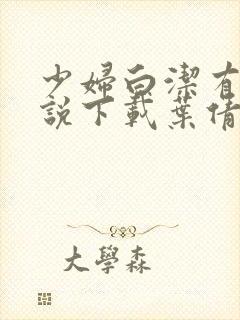 少婦白潔有
說下載葉倩
大學森